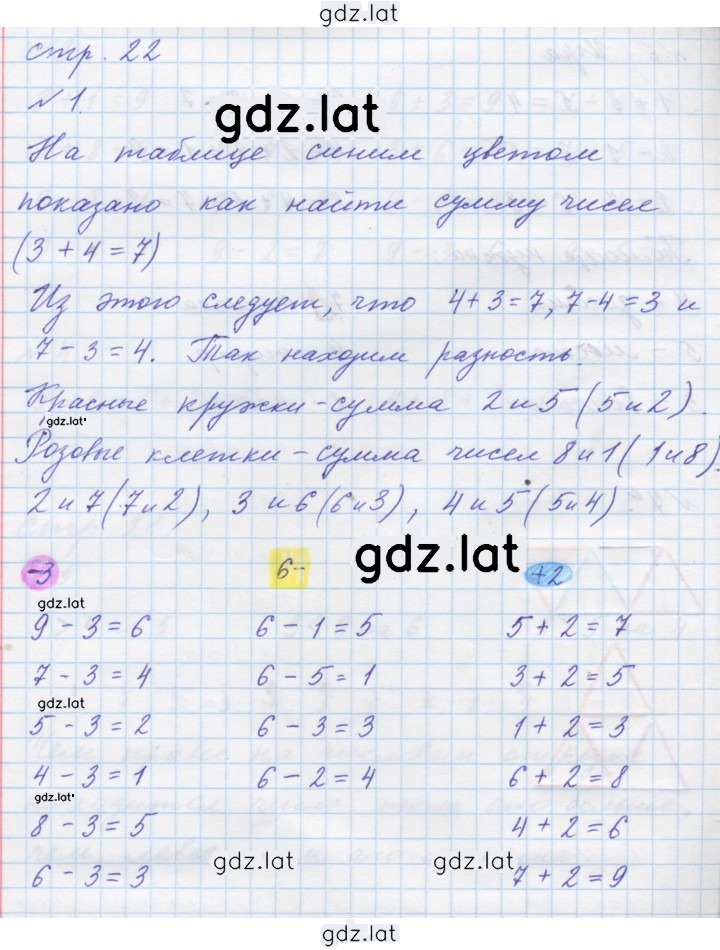 gdz.lat
стр. 22
№ 1.
gdz.lat
На таблице синим цветом
показано как найти сумму чисел
(3 + 4 = 7)
Из этого следует, что 4 + 3 = 7, 7 - 4 = 3 и
7 - 3 = 4. Так находим разность.
Красные кружки - сумма 2 и 5 (5 и 2).
gdz.lat
Розовые клетки - сумма чисел 8 и 1 (1 и 8).
2 и 7 (7 и 2), 3 и 6 (6 и 3), 4 и 5 (5 и 4)
gdz.lat
-3 6- +2
gdz.lat
9 - 3 = 6 6 - 1 = 5 5 + 2 = 7
7 - 3 = 4 6 - 5 = 1 3 + 2 = 5
gdz.lat
5 - 3 = 2 6 - 3 = 3 1 + 2 = 3
4 - 3 = 1 6 - 2 = 4 6 + 2 = 8
gdz.lat
8 - 3 = 5 4 + 2 = 6
gdz.lat gdz.lat
6 - 3 = 3 7 + 2 = 9
gdz.lat